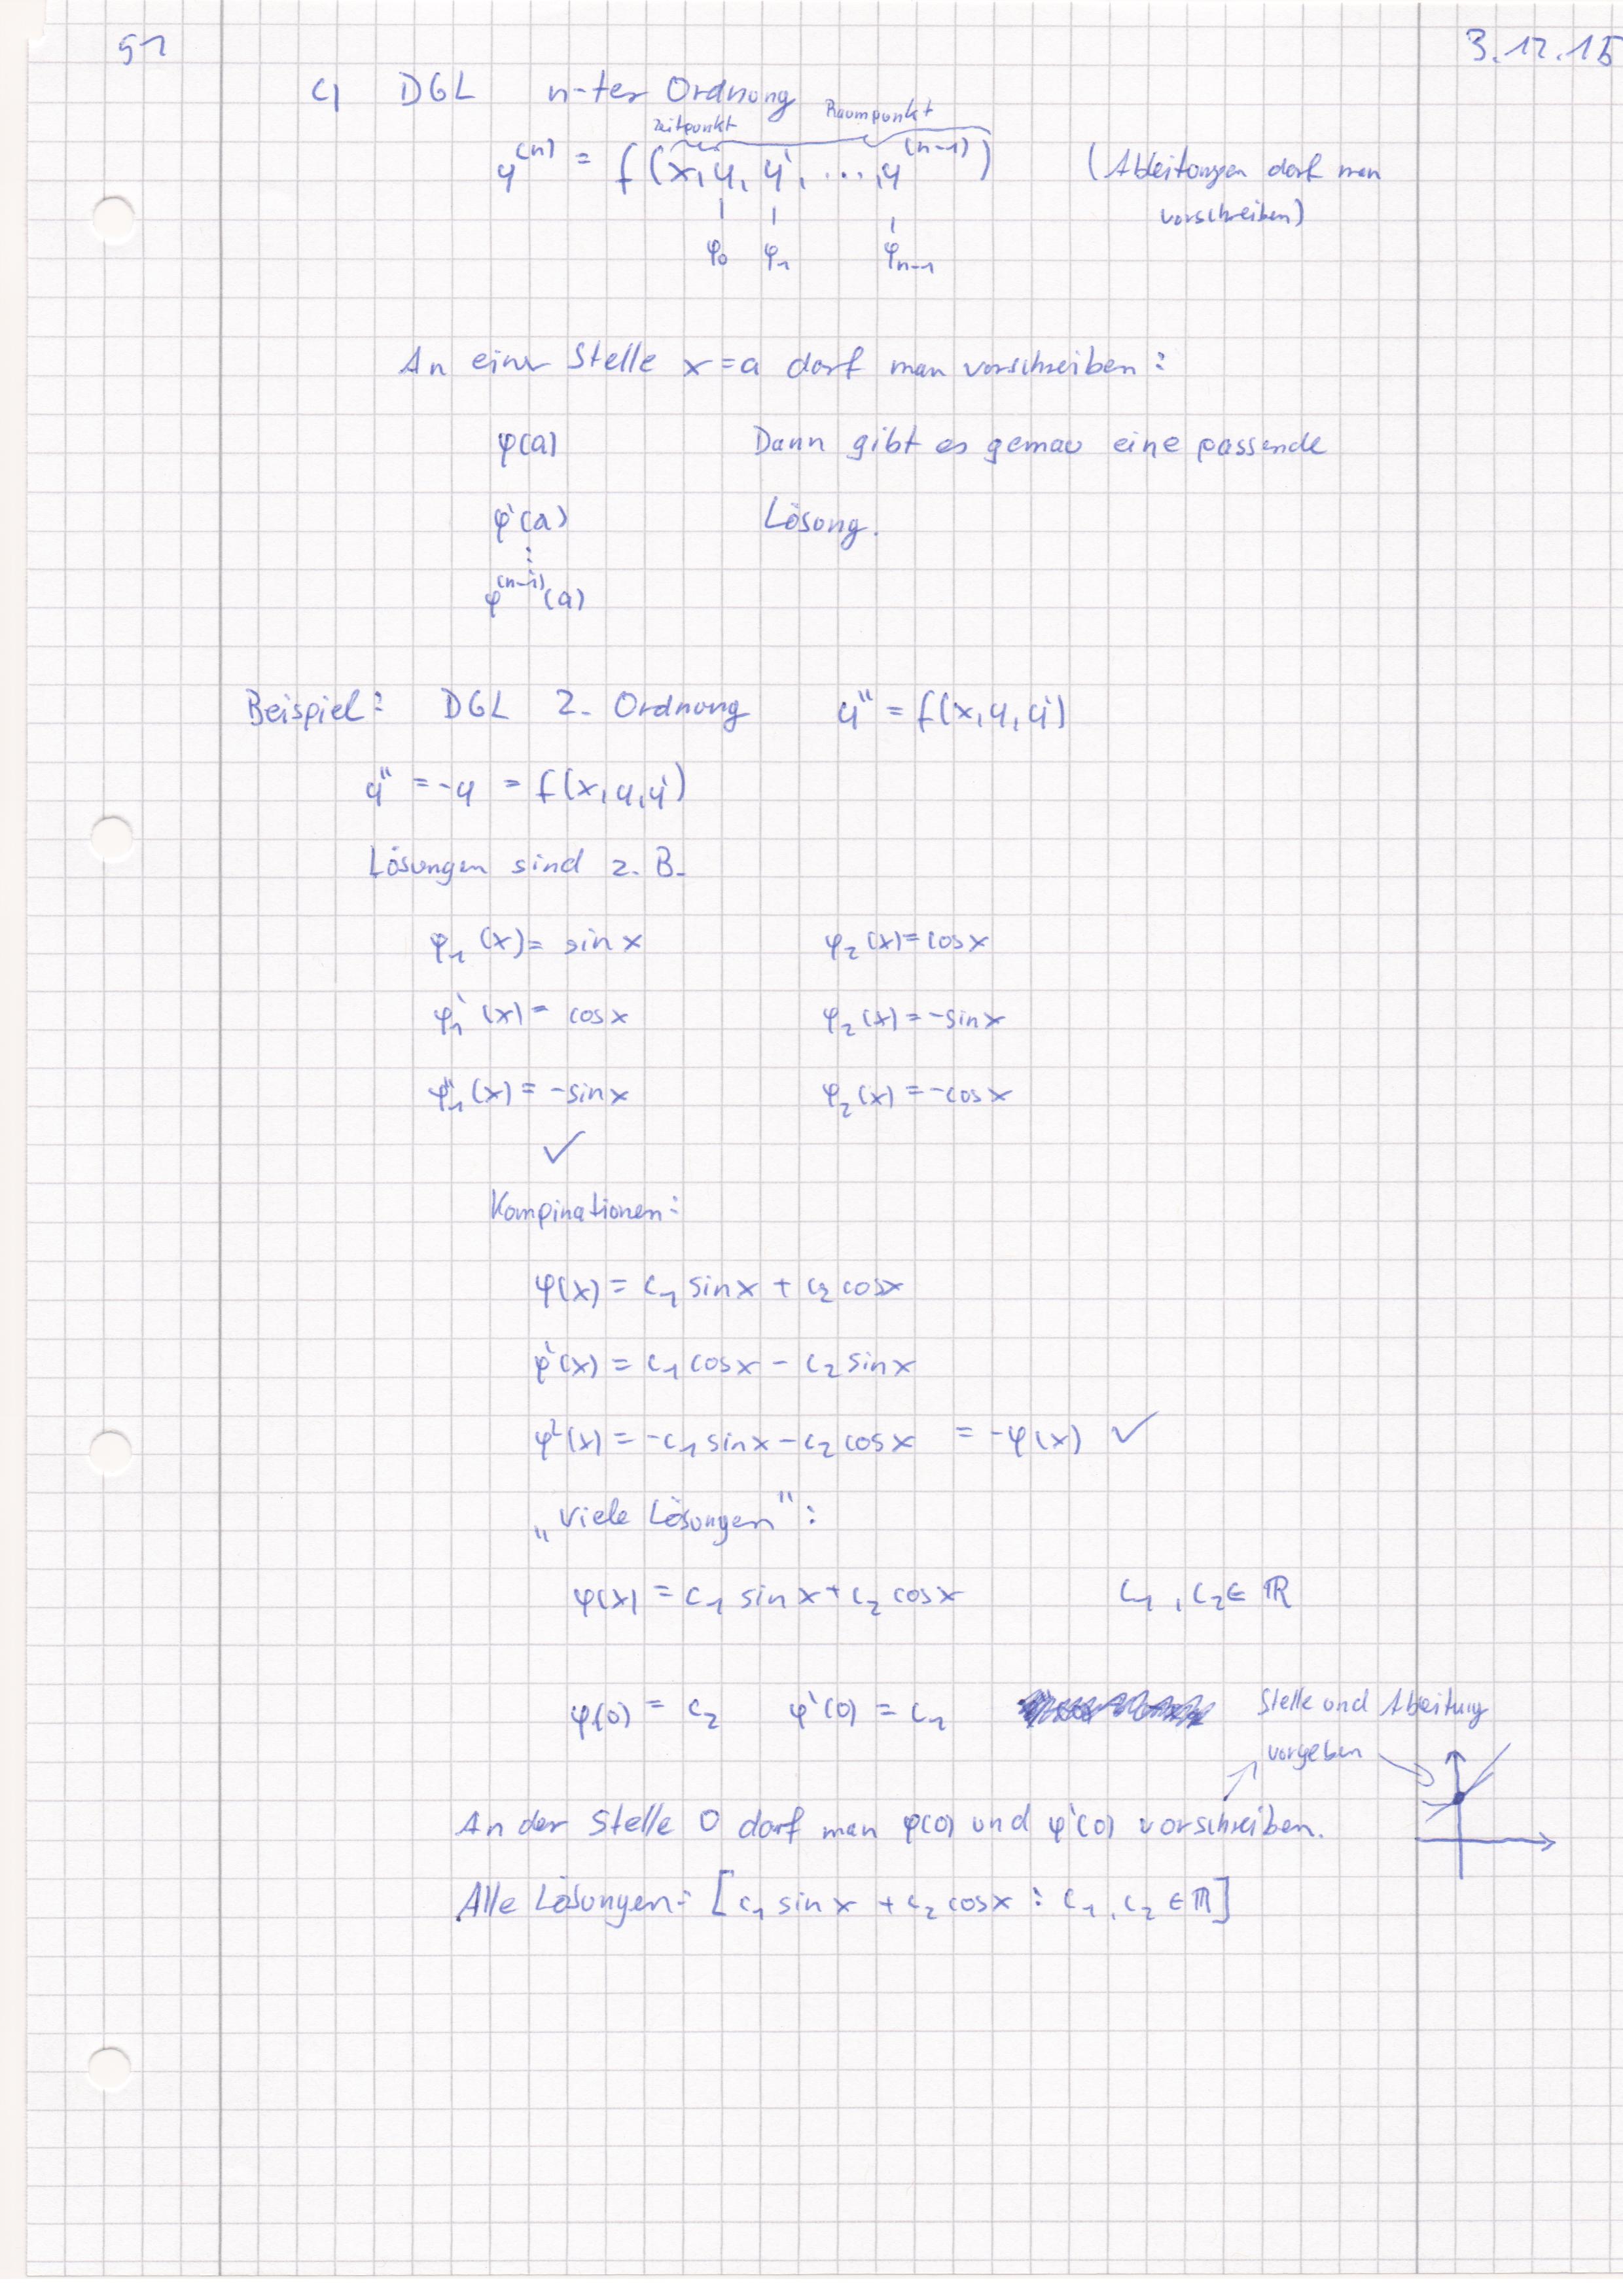 51
3.12.15
c) DGL n-ter Ordnung
Zeitpunkt Raumpunkt
y^(n) = f(x, y, y', ..., y^(n-1)) (Ableitungen darf man
vorschreiben)
φ₀ φ₁ φₙ₋₁
An einer Stelle x=a darf man vorschreiben:
φ(a) Dann gibt es genau eine passende
φ'(a) Lösung.
⋮
φ^(n-1)(a)
Beispiel: DGL 2. Ordnung y'' = f(x, y, y')
y'' = -y = f(x, y, y')
Lösungen sind z. B.
φ₁(x) = sin x φ₂(x) = cos x
φ₁'(x) = cos x φ₂(x) = -sin x
φ₁''(x) = -sin x φ₂(x) = -cos x
✓
Kompinationen:
φ(x) = c₁ sin x + c₂ cos x
φ'(x) = c₁ cos x - c₂ sin x
φ²(x) = -c₁ sin x - c₂ cos x = -φ(x) ✓
„Viele Lösungen":
φ(x) = c₁ sin x + c₂ cos x c₁, c₂ ∈ ℝ
φ(0) = c₂ φ'(0) = c₁ Stelle und Ableitung
vorgeben
An der Stelle 0 darf man φ(0) und φ'(0) vorschreiben.
Alle Lösungen: [c₁ sin x + c₂ cos x : c₁, c₂ ∈ ℝ]